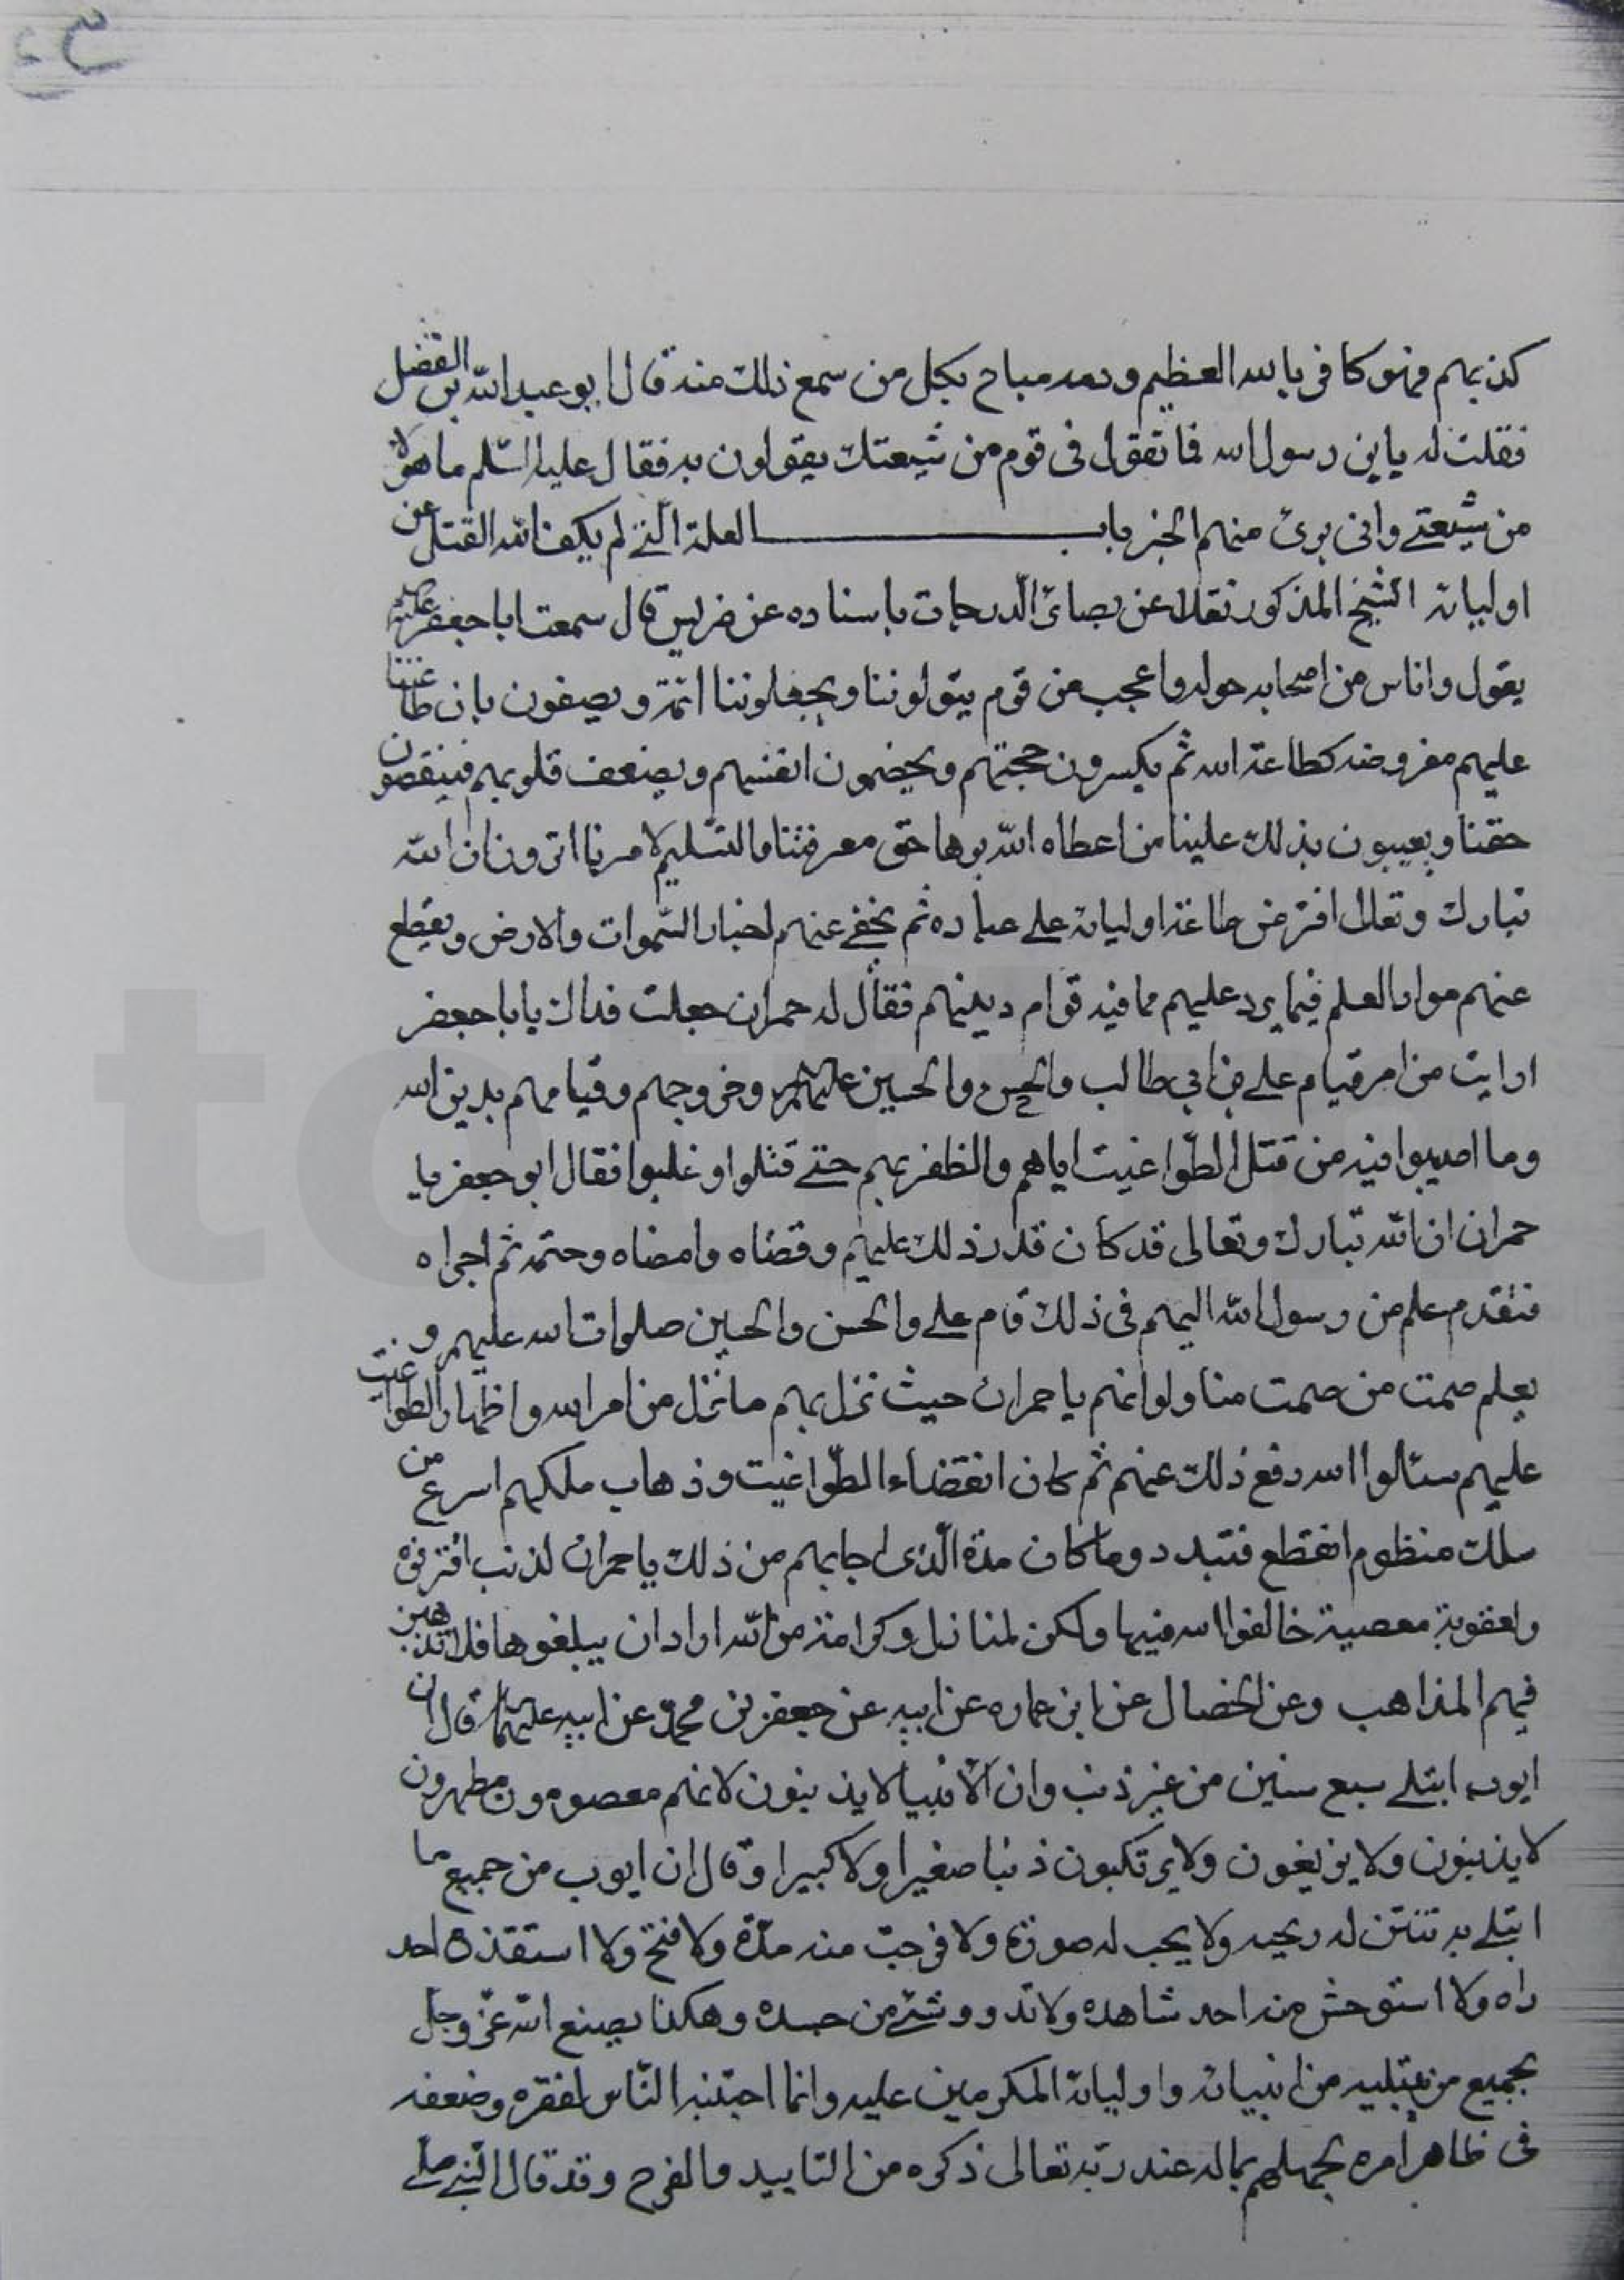 كذبهم فهو كافر بالله العظيم ودمه مباح بكل من سمع ذلك منه قال ابو عبد الله بن الفضل
فقلت له يا بن رسول الله فما تقول فى قوم من شيعتك يقولون به فقال عليه السّلم ما هؤلاء
من شيعتے وانى برئ منهم الخبر باب العلة الّتے لم يكف الله القتل عن
اوليائه الشيخ المذكور نقلا عن بصائر الدرجات باسناده عن ضريس قال سمعت ابا جعفر عليه
يقول واناس من اصحابه حوله واعجب من قوم يتولوننا ويجعلوننا ائمة ويصفون بان طاعتنا
عليهم مفروضه كطاعة الله ثم يكسرون حجتهم ويخصمون انفسهم ويضعف قلوبهم فينقصون
حقنا ويعيبون بذلك علينا من اعطاه الله برهان حق معرفتنا والتسليم لامرنا اترون ان الله
تبارك وتعالى افترض طاعة اوليائه علے عباده ثم يخفے عنهم اخبار السّموات والارض ويقطع
عنهم مواد العلم فيما يرد عليهم مما فيه قوام دينهم فقال له حمران جعلت فداك يا با جعفر
ارايت من امر قيام علے بن ابي طالب والحسن والحسين عليهم وخروجهم وقيامهم بدين الله
وما اصيبوا فيه من قتل الطّواغيت اياهم والظفر بهم حتے قتلوا وغلبوا فقال ابو جعفر يا
حمران ان الله تبارك وتعالى قد كان قدر ذلك عليهم وقضاه وامضاه وحتمه ثم اجراه
فتقدم علم من رسول الله اليهم فى ذلك قام علے والحسن والحسين صلوات الله عليهم و
بعلم صمت من صمت منا ولو انهم يا حمران حيث نزل بهم ما نزل من امر الله واظهار الطواغيت
عليهم سئالوا الله دفع ذلك عنهم ثم كان انقضاء الطّواغيت وذهاب ملكهم اسرع من
سلك منظوم انقطع فتبدد وما كان مدة الّذى اجابهم من ذلك يا حمران لذنب اقترفوه
ولعقوبة معصية خالفوا الله فيها ولكن لمنازل وكرامة من الله اراد ان يبلغوها فلا تذهبن
فيهم المذاهب وعن الخصال عن ابن عماره عن ابيه عن جعفر بن محمد عن ابيه عليهما قال ان
ايوب ابتلے سبع سنين من غير ذنب وان الانبيا لا يذنبون لانهم معصومون مطهرون
لا يذنبون ولا يزيغون ولا يرتكبون ذنبا صغيرا ولا كبيرا وقال ان ايوب من جميع ما
ابتلے به تنتن له ريحه ولا يحب له صورة ولا خرجت منه مدّة ولا قيح ولا استقذره احد
راه ولا استوحش منه احد شاهده ولا تدوو شئ من جسده وهكذا يصنع الله عزّ وجلّ
بجميع من يبتليه من انبيائه واوليائه المكرمين عليه وانما اجتنبه النّاس لفقره وضعفه
فى ظاهر امره لجهلهم بماله عند ربّه تعالى ذكره من التاييد والفرج وقد قال النّبے صلے